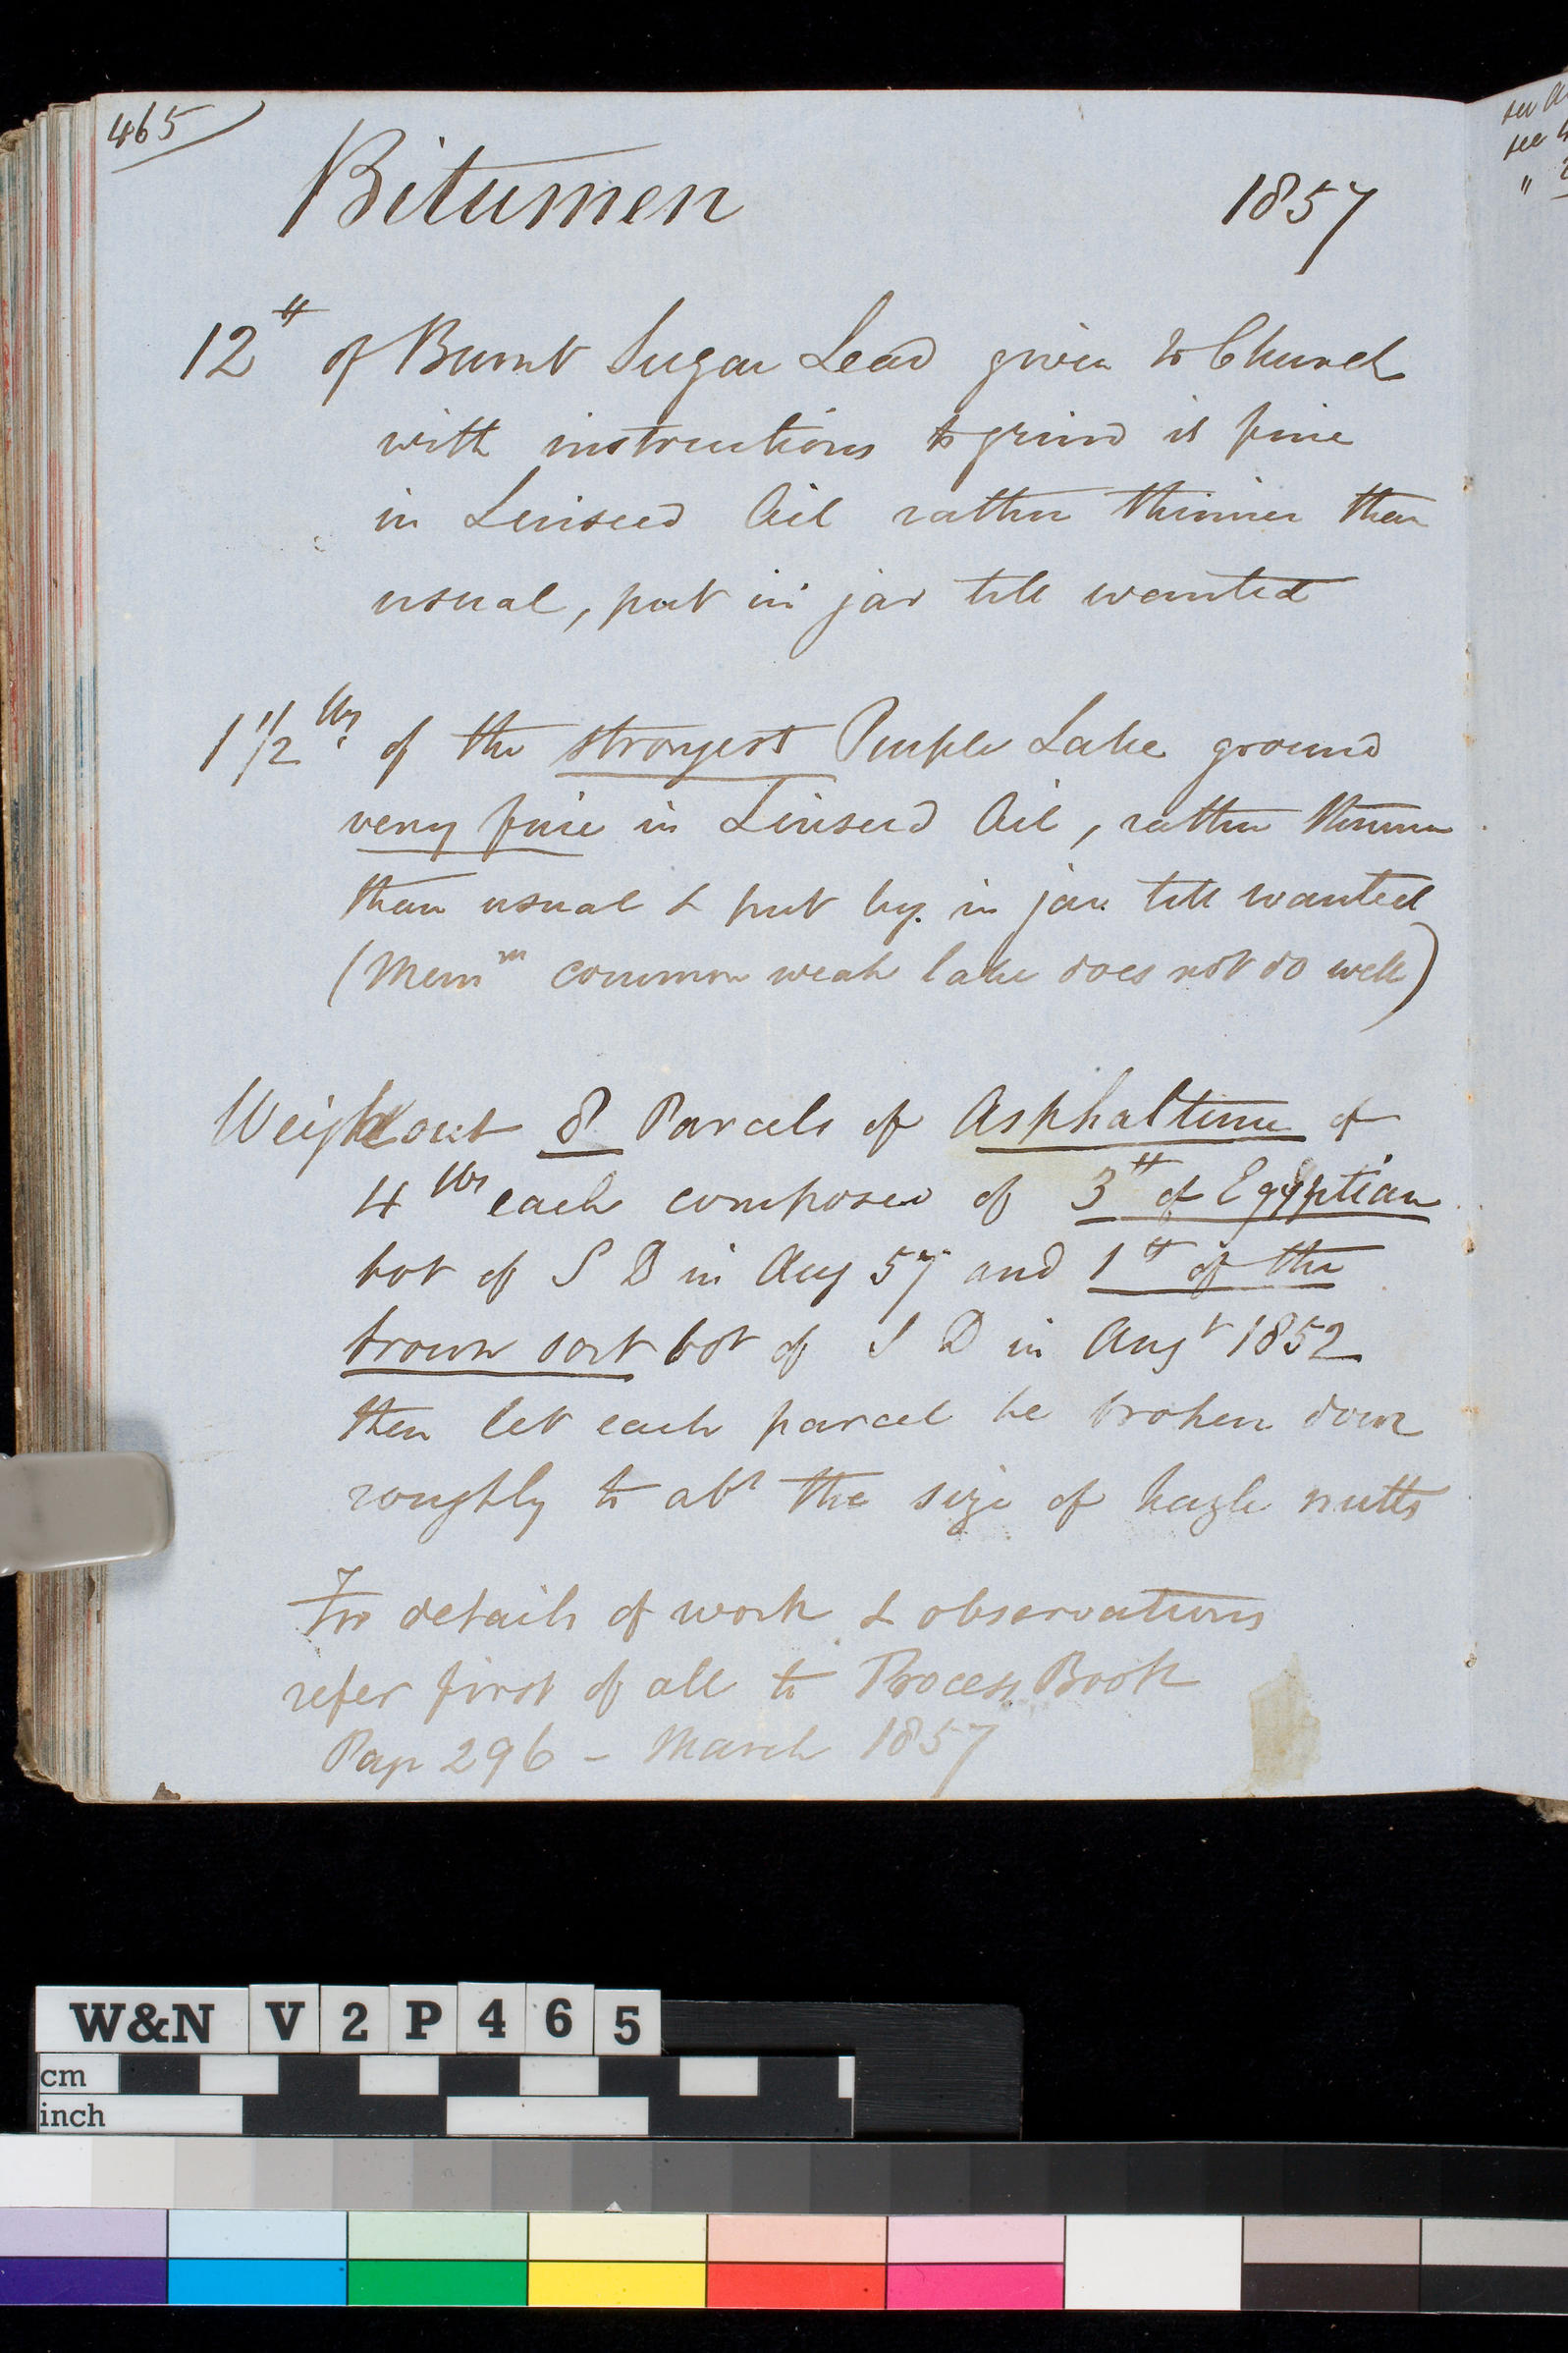 465
Bitumen 1857
12 ℔ of Burnt Sugar Lead given to Church
with instructions to grind it fine
in Linseed Oil rather thinner than
usual, put in jar till wanted
1 1/2 lbs of the strongest Purple Lake ground
very fine in Linseed Oil, rather thinner
than usual & put by in jar till wanted
(Memm common weak lake does not do well)
Weigh out 8 Parcels of Asphaltum of
4 lbs each composed of 3 ℔ of Egyptian
bot of S D in Aug 57 and 1 ℔ of the
brown sort bot of S D in Augt 1852
then let each parcel be broken down
roughly to abt the size of hazle nutts
For details of work & observations
refer first of all to Process Book
Page 296 - March 1857
see
see
"
W&N V2P465
cm
inch